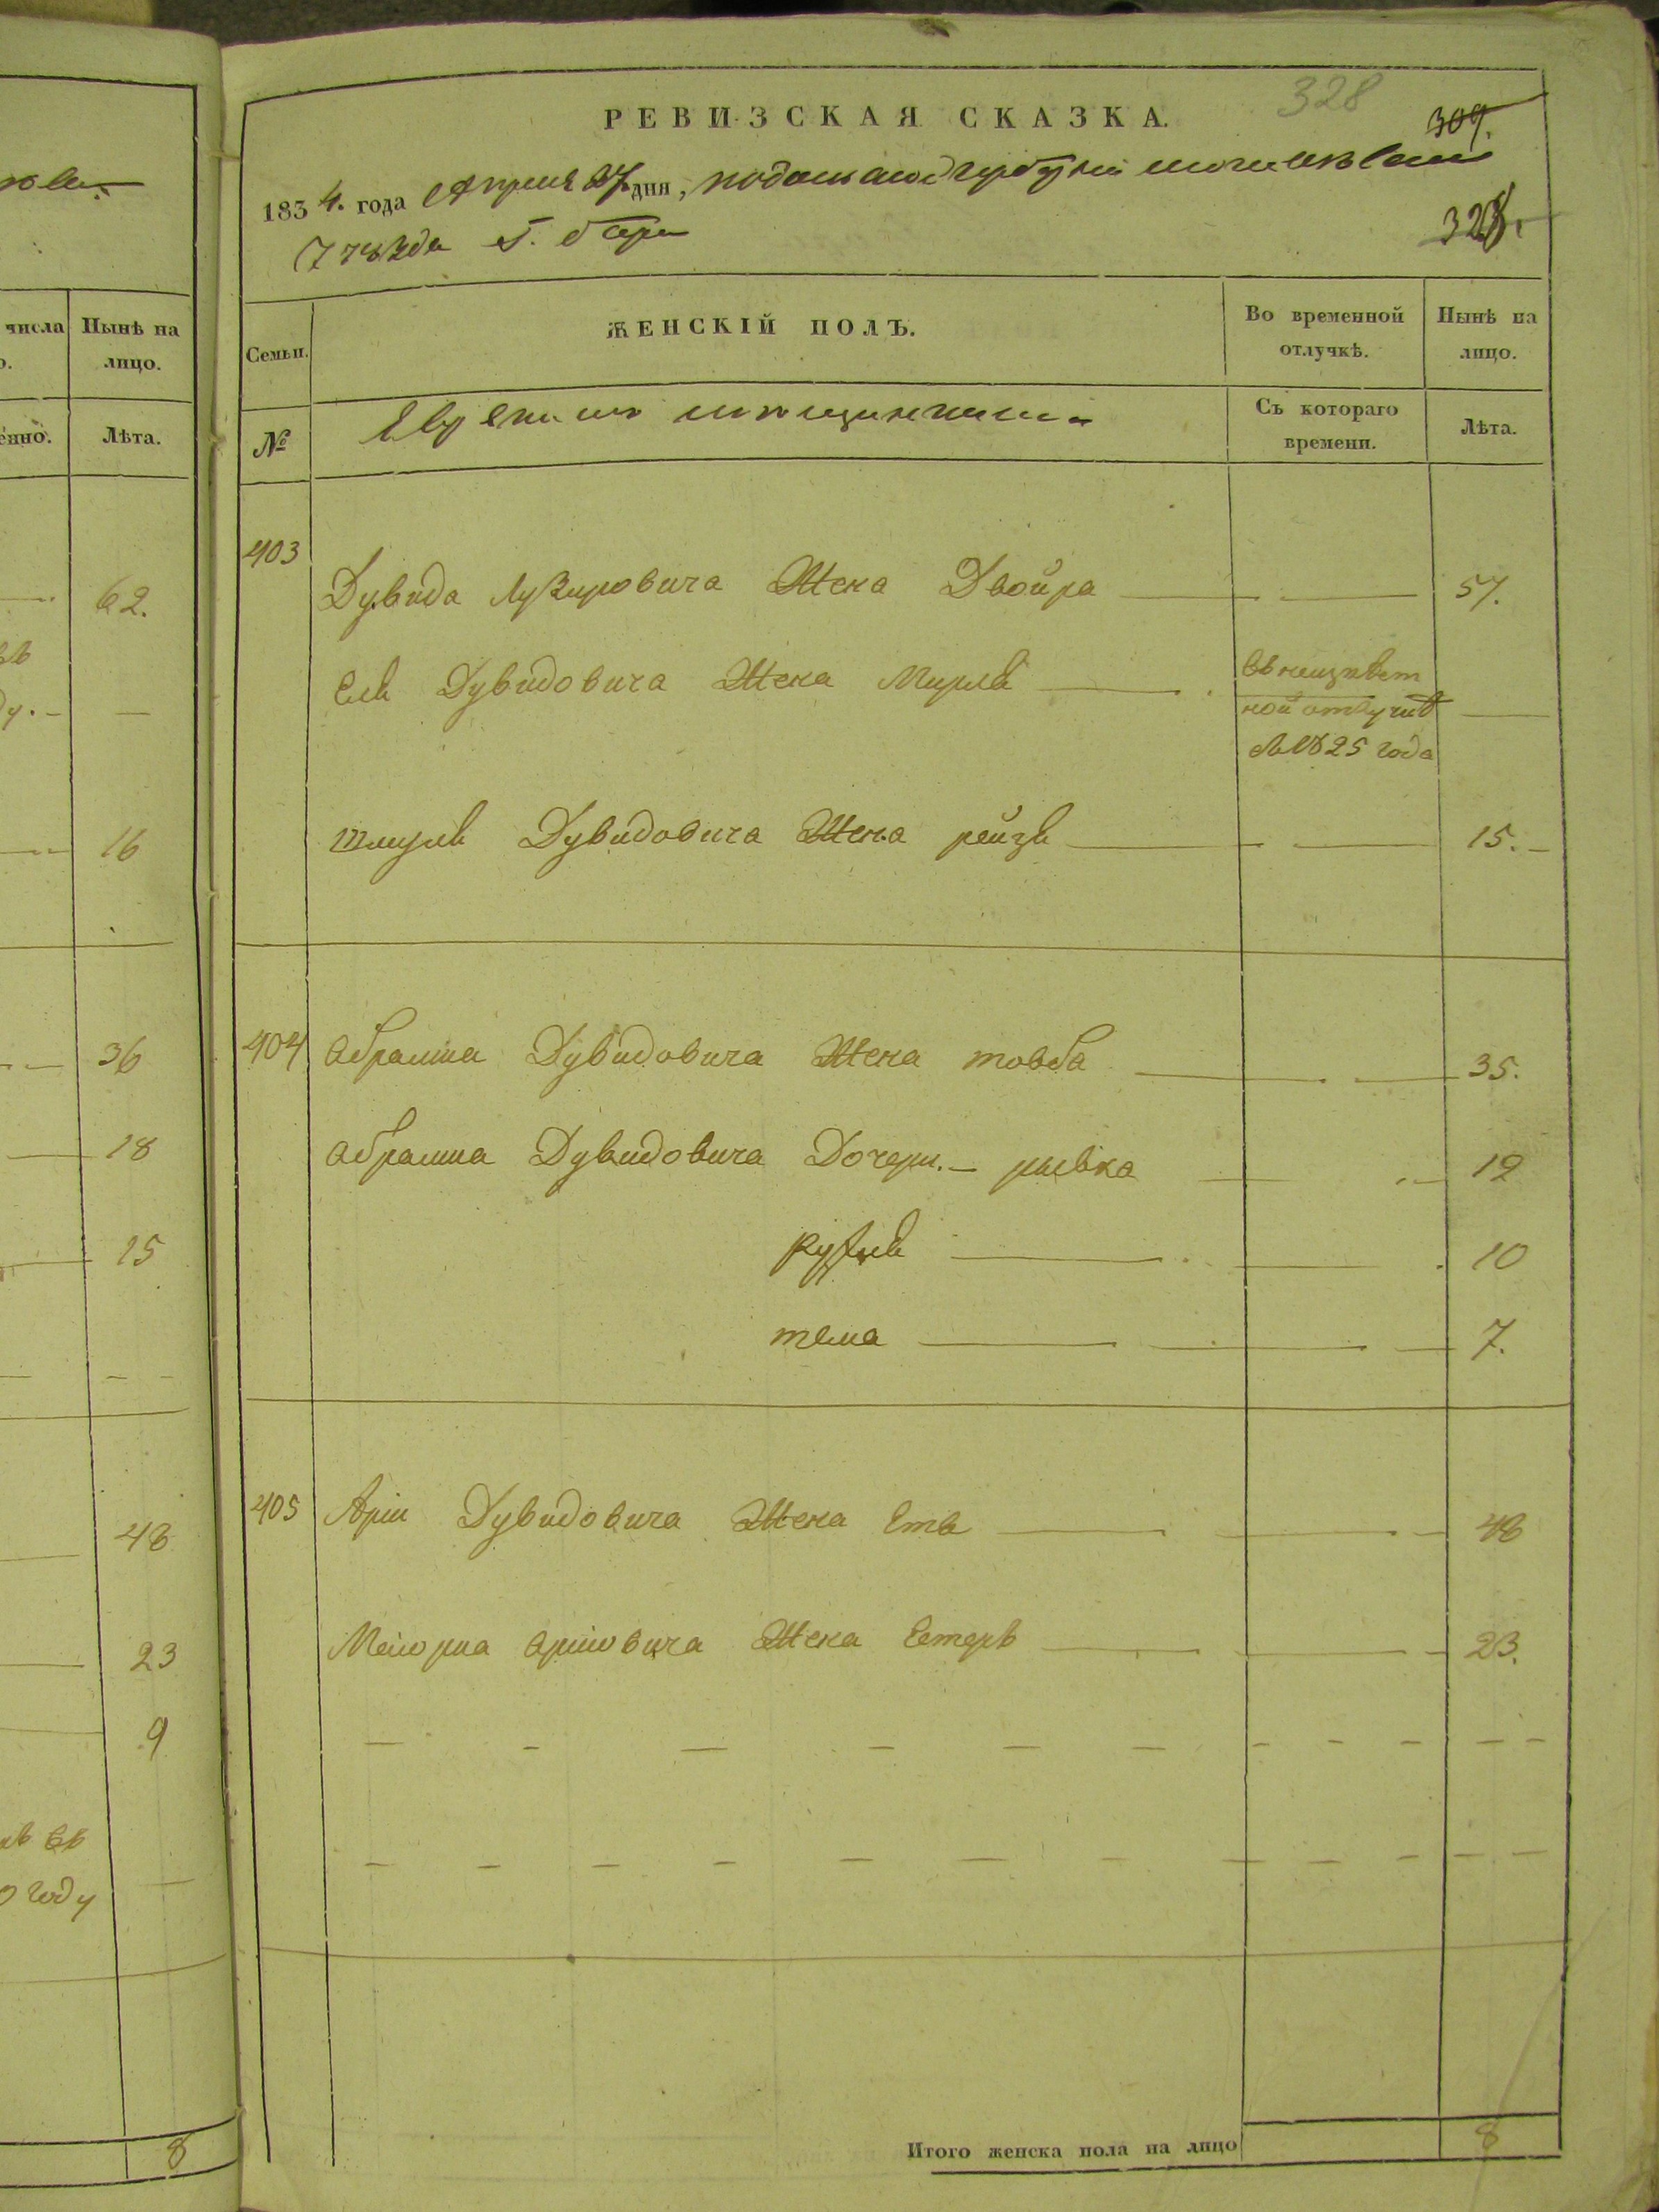 328
РЕВИЗСКАЯ СКАЗКА.
309.
1834. года Апреля 27 дня,
328.
ЖЕНСКІЙ ПОЛЪ.
Семьи.
№
Во временной отлучкѣ.
Съ котораго времени.
Нынѣ на лицо.
Лѣта.
403
Дувида Лузировича Жена Двойра 57.
Ели Дувидовича Жена Мирля
въ неизвѣст
ной отлучкѣ
съ 1825 года
Шмуля Дувидовича Жена рейзя 15.
404 Абрама Дувидовича Жена товба 35.
Абрама Дувидовича Дочери. рывка 12
10
тема 7.
405 Аріи Дувидовича Жена Етя 48
Меiорка Аріовича Жена Естеръ 23.
Итого женска пола на лицо 8
числа
Нынѣ на лицо.
Лѣта.
62.
16
36
18
15
48
23
9
году
8